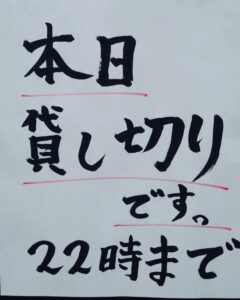 本日
貸し切り
です。
22時まで